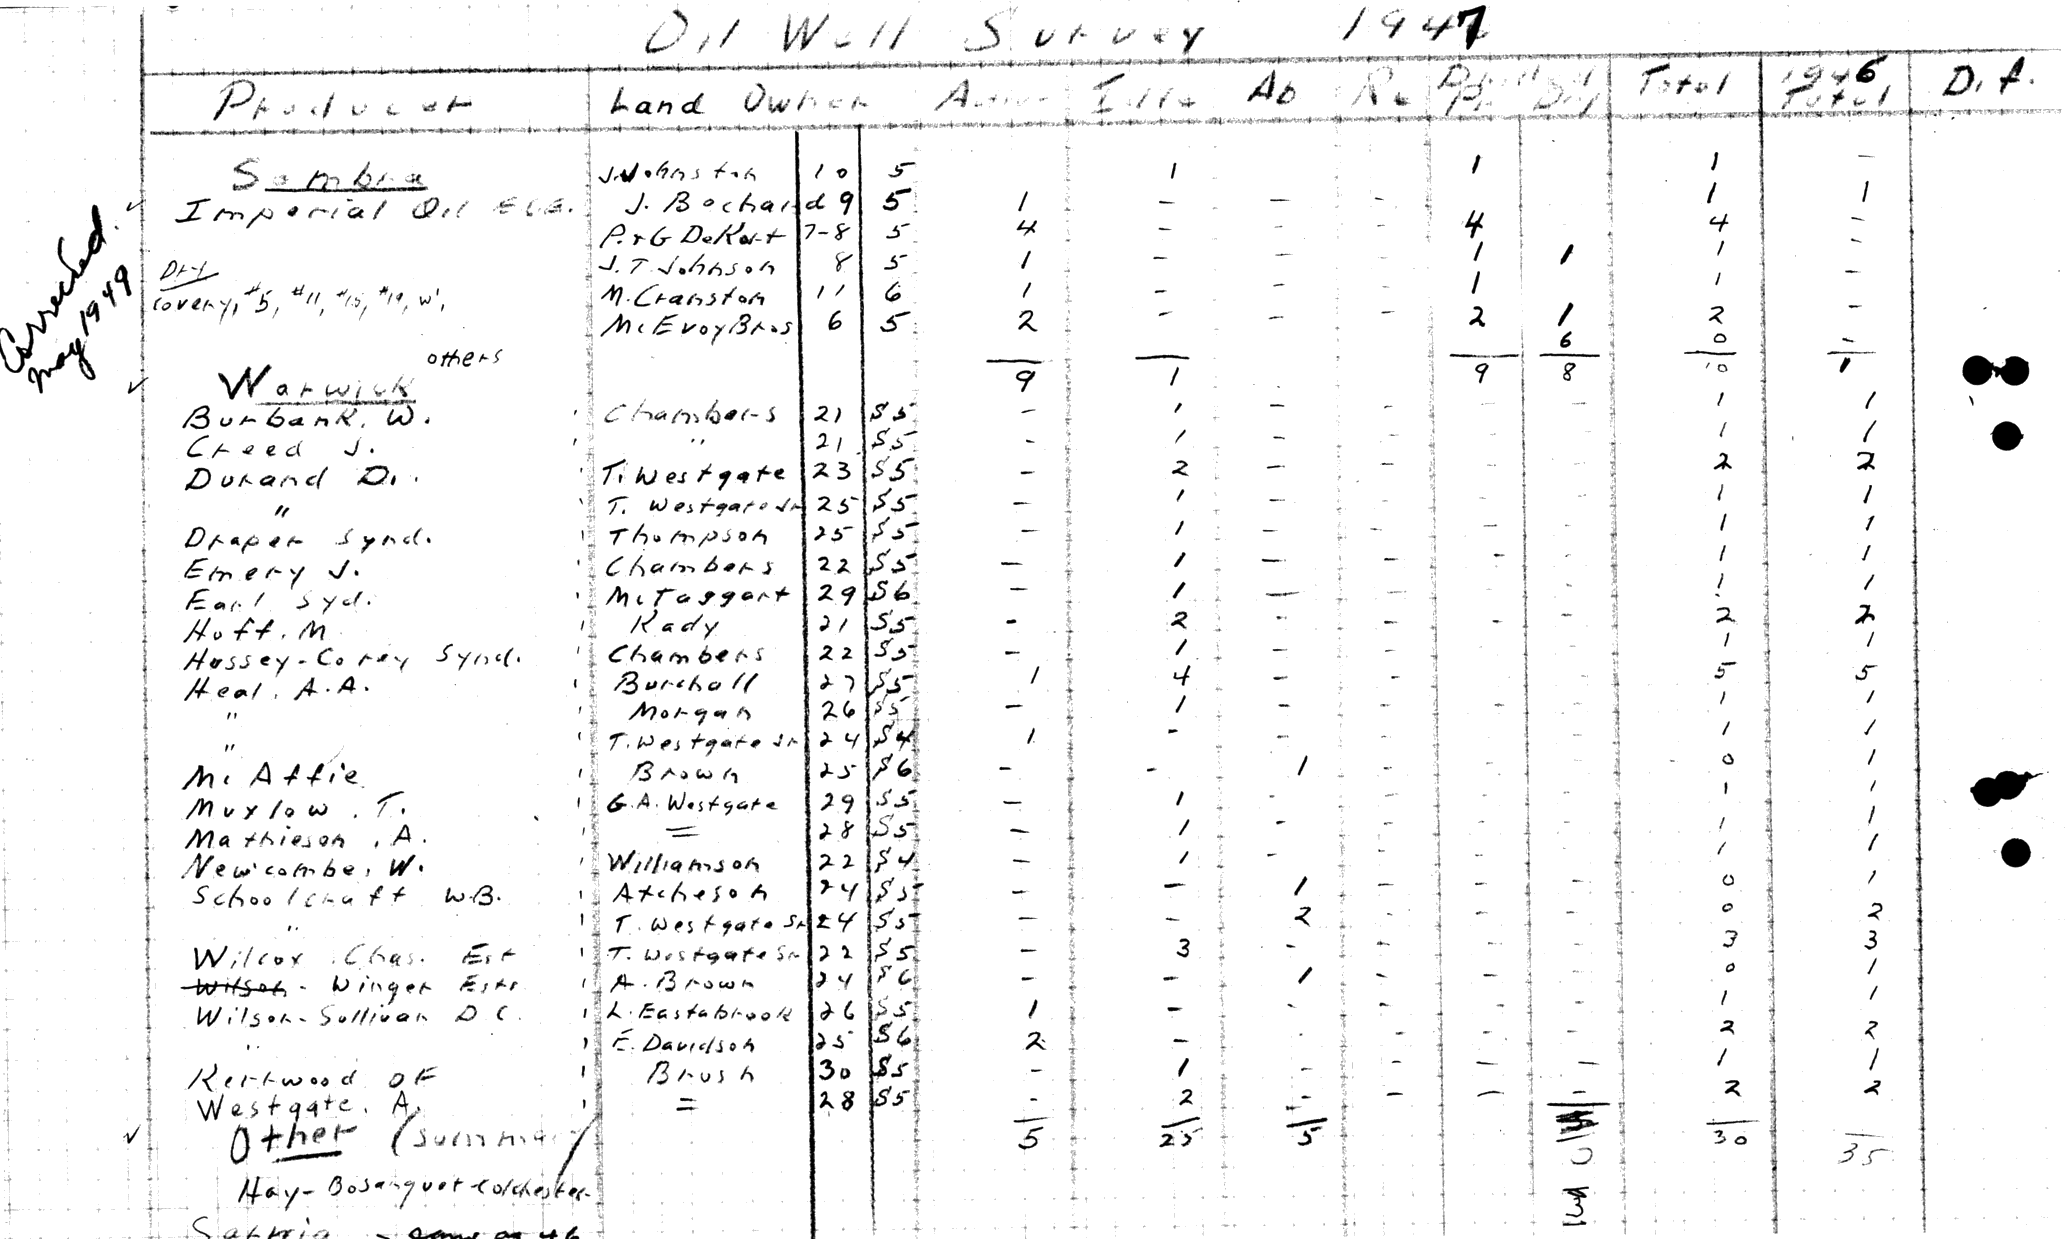 Oil Well Survey 1947
Producer Land Owner Active Idle Ab Re Total 1946 Total Dif.
Sombra J. Johnston 10 5 1 1 1 -
Imperial Oil J. Bechard 9 5 1 - - - 1 1
P. & G DeKort 7-8 5 4 - - - 4 4 -
Dry J. T. Johnson 8 5 1 - - - 1 1 1 -
covery, #5, #11, #15, #19, W', M. Cranston 11 6 1 - - - 1 1 -
McEvoy Bros 6 5 2 - - - 2 1 2 -
others 6 0 -
9 1 9 8 10 1
Warwick
Burbank, W. Chambers 21 S5 - 1 - - - - 1 1
Creed J. " 21 S5 - 1 - - - - 1 1
Durand D. T. Westgate 23 S5 - 2 - - - - 2 2
" T. Westgate Jr 25 S5 - 1 - - - - 1 1
Draper Synd. Thompson 25 S5 - 1 - - - - 1 1
Emery J. Chambers 22 S5 - 1 - - - - 1 1
Earl Syd. McTaggart 29 S6 - 1 - - - - 1 1
Huff. M Kady 21 S5 - 2 - - - - 2 2
Hussey-Corey Synd. Chambers 22 S5 - 1 - - - - 1 1
Heal. A.A. Burchall 27 S5 1 4 - - - - 5 5
" Morgan 26 S5 - 1 - - - - 1 1
" T. Westgate Jr 24 S4 1 - - - - - 1 1
McAffie Brown 25 S6 - - 1 - - - 0 1
Muxlow, T. G.A. Westgate 29 S5 - 1 - - - - 1 1
Mathieson, A. = 28 S5 - 1 - - - - 1 1
Newcombe, W. Williamson 22 S4 - 1 - - - - 1 1
Schoolcraft W.B. Atcheson 24 S5 - - 1 - - - 0 1
" T. Westgate Sr 24 S5 - - 2 - - - 0 2
Wilcox Chas. Est T. Westgate Sr 22 S5 - 3 - - - - 3 3
Wilson - Winger Ests A. Brown 24 S6 - - 1 - - - 0 1
Wilson-Sullivan D C. L. Eastabrook 26 S5 1 - - - - - 1 1
" E. Davidson 25 S6 2 - - - - - 2 2
Kerrwood OF Brush 30 S5 - 1 - - - - 1 1
Westgate, A. = 28 S5 - 2 - - - - 2 2
Other (summary) 5 25 5 30 35
Hay-Bosanquet-Colchester
Sarnia - same as 46
Corrected.
May 1949